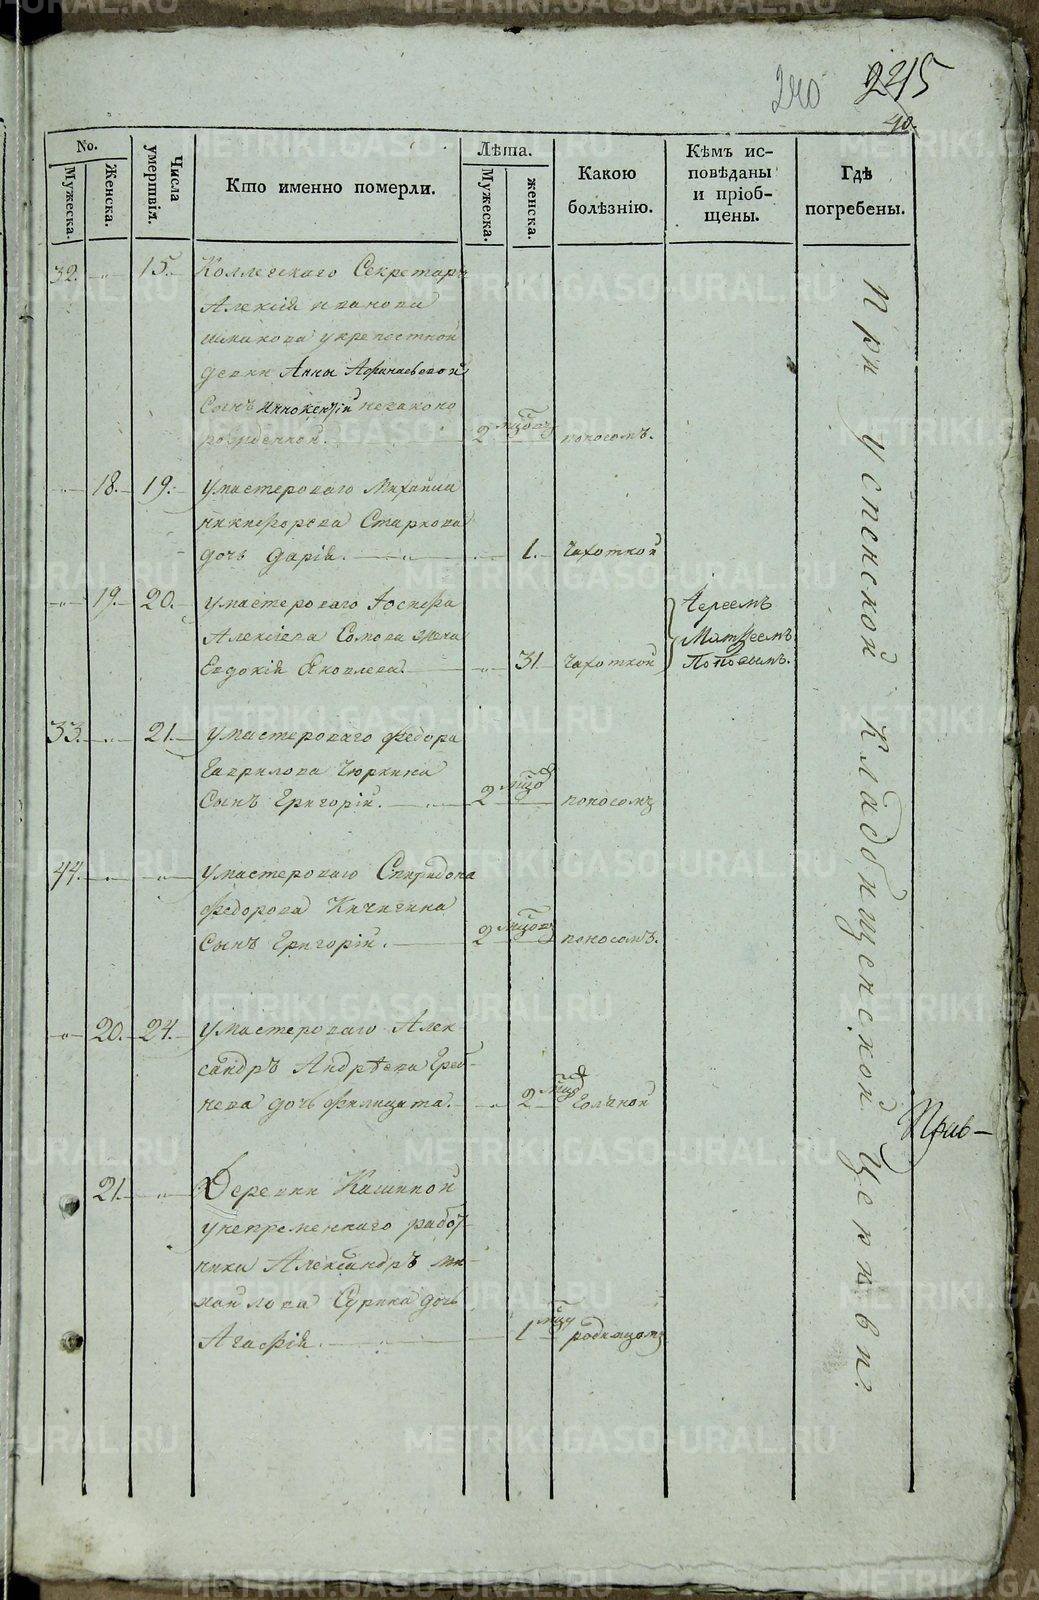 240 2215
40.
No.
Мужеска.
Женска.
Числа умертвія.
Кто именно померли.
Лѣта.
Мужеска.
женска.
Какою болѣзнію.
Кѣмъ ис-
повѣданы
и пріоб-
щены.
Гдѣ
погребены.
32. — " — 15. Коллегскаго Секретаря
Алексія Иванова
Шмакова у крепостной
девки Анны Афанасьевой
Сынъ Иннокентій незаконо
рожденной. 2 мцовъ поносомъ.
— " — 18. 19. у мастероваго Михаила
Никифорова Старкова
дочь Дарія. — " — 1. Чахоткой
— " — 19. 20. у мастероваго Іосифа
Алексіева Сомова жена
Евдокія Яковлева. — " — 31 Чахоткой
Іереемъ
Матѳеемъ
Поповымъ.
33. — " — 21. у мастероваго Федора
Гаврилова Чюркина
Сынъ Григорій. 2 мцов поносомъ
44. — " — " — у мастероваго Спиридона
Федорова Кичигина
Сынъ Григорій. 2 мцовъ поносомъ.
— " — 20. 24. у мастероваго Алек-
сандръ Андрѣева Греб-
нева дочь Филицата. — " — 2 нед
21. — " — Деревни Калинкой
у непременнаго работ
ника Александръ Ми-
хаилова Сурина дочь
Агафія. 1 мцу родимцомъ
При успенской Кладбищенской Церкви.